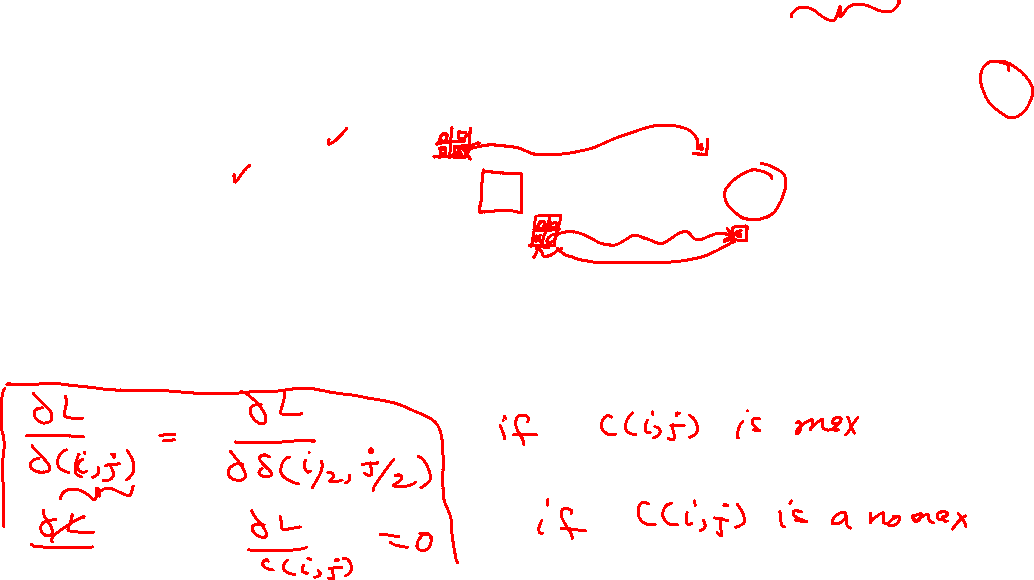 ∂L/∂C(i,j) = ∂L/∂S(i/2, j/2) if C(i,j) is max
∂L/C(i,j) = 0 if C(i,j) is a nomax